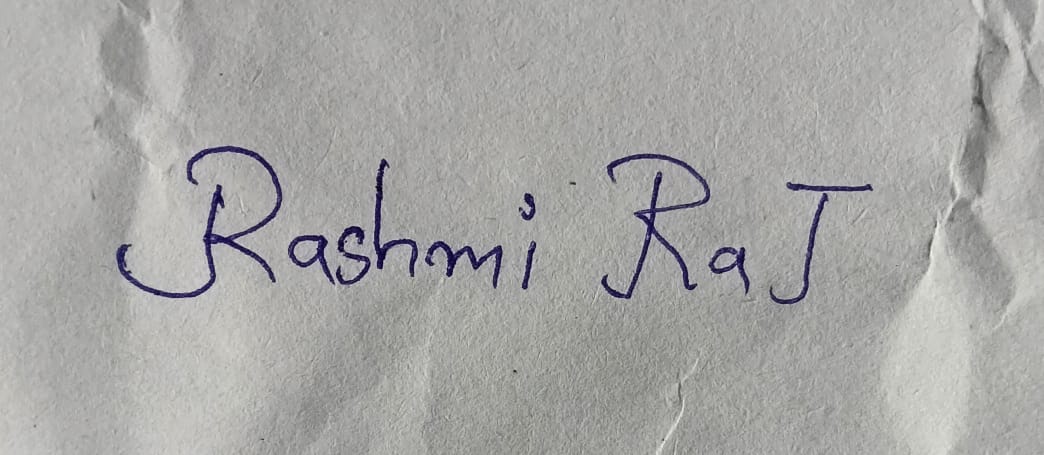 Rashmi RaJ